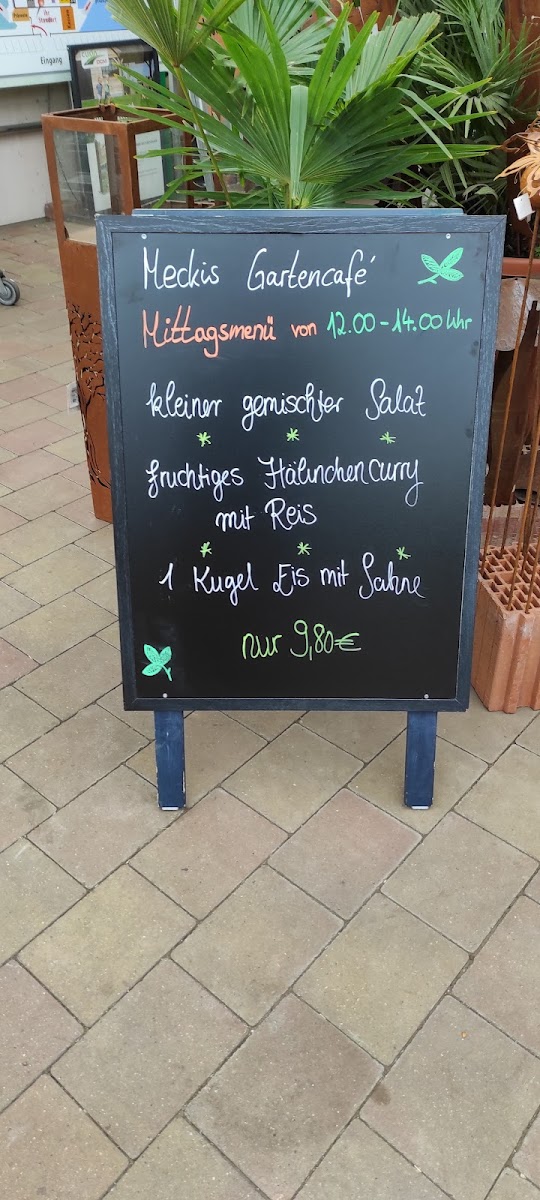 Eingang
Meckis Gartencafé
Mittagsmenü von 12.00-14.00 Uhr
kleiner gemischter Salat
fruchtiges Hähnchencurry
mit Reis
1 Kugel Eis mit Sahne
nur 9,80€